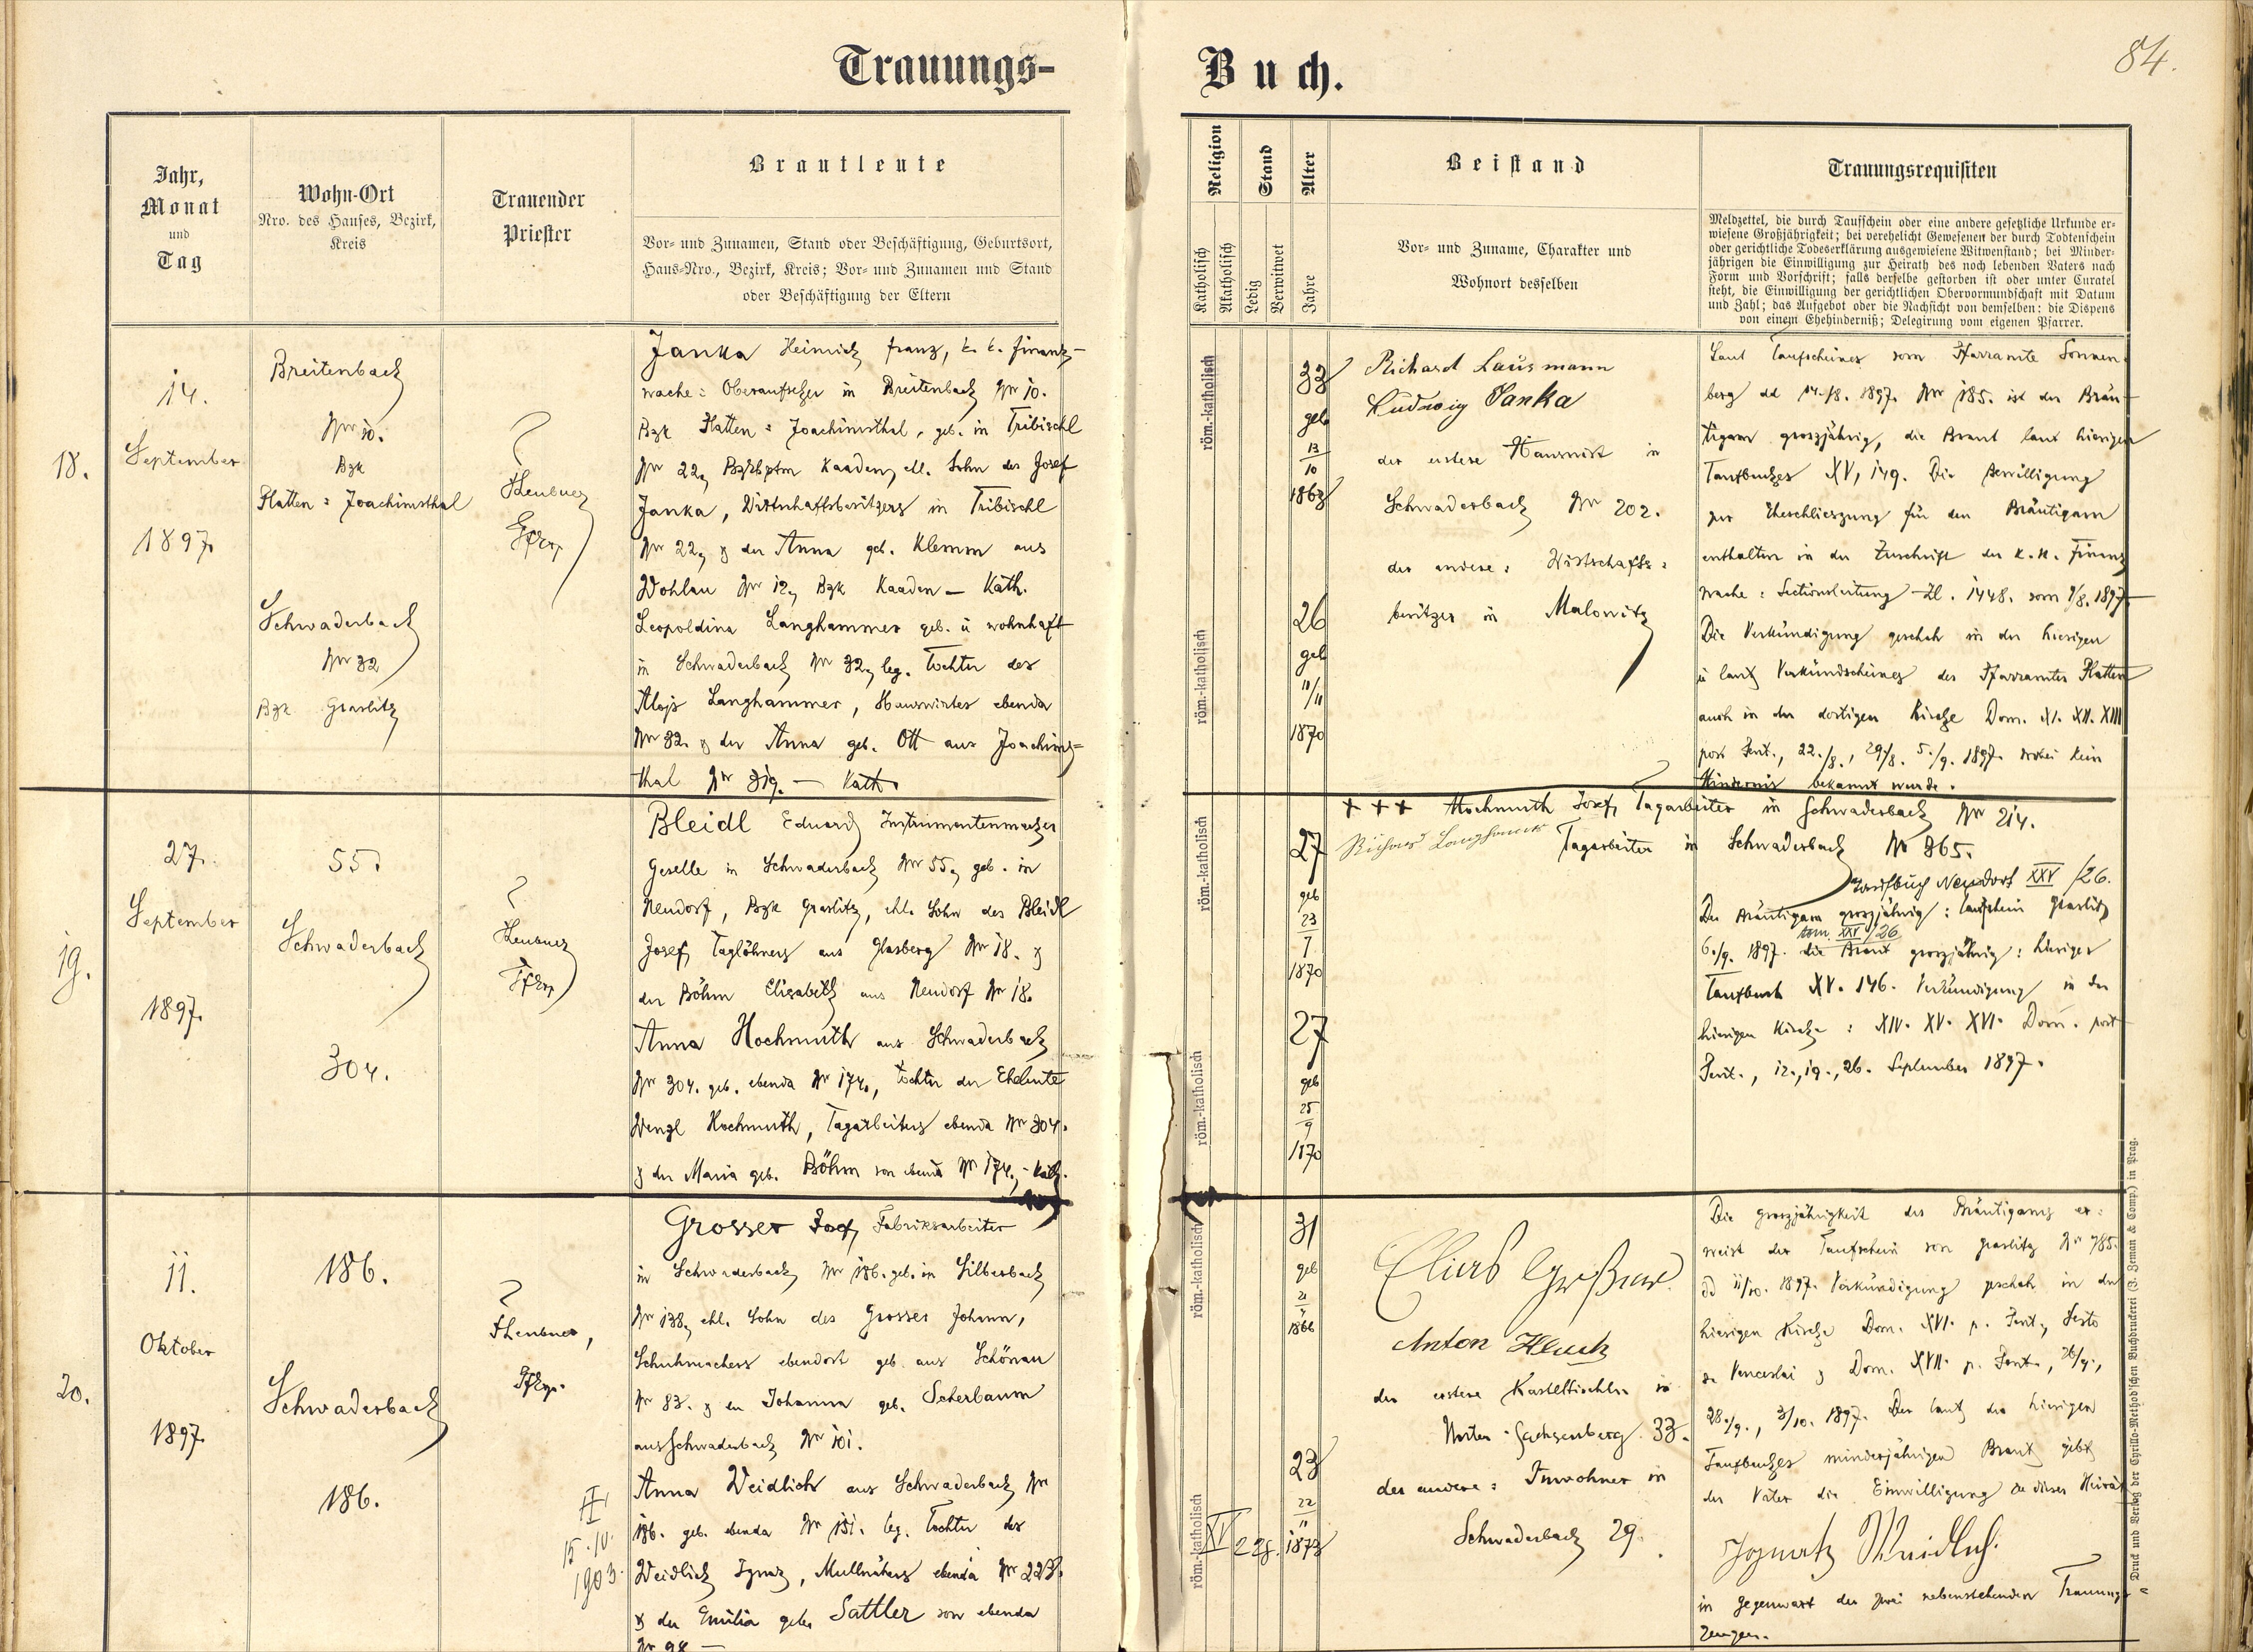 Trauungs-
Buch.
84.
Jahr,
Monat
und
Tag
Wohn-Ort
Nro. des Hauses, Bezirk,
Kreis
Trauender
Priester
Brautleute
Vor- und Zunamen, Stand oder Beschäftigung, Geburtsort,
Haus-Nro., Bezirk, Kreis; Vor- und Zunamen und Stand
oder Beschäftigung der Eltern
Religion
Katholisch
Akatholisch
Stand
Ledig
Verwitwet
Alter
Jahre
Beistand
Vor- und Zuname, Charakter und
Wohnort desselben
Trauungsrequisiten
Meldzettel, die durch Taufschein oder eine andere gesetzliche Urkunde er-
wiesene Großjährigkeit; bei verehelicht Gewesenen der durch Todtenschein
oder gerichtliche Todeserklärung ausgewiesene Witwenstand; bei Minder-
jährigen die Einwilligung zur Heirath des noch lebenden Vaters nach
Form und Vorschrift; falls derselbe gestorben ist oder unter Curatel
steht, die Einwilligung der gerichtlichen Obervormundschaft mit Datum
und Zahl; das Aufgebot oder die Nachsicht von demselben: die Dispens
von einem Ehehinderniß; Delegirung vom eigenen Pfarrer.
18.
14.
September
1897.
Breitenbach
Nr 10.
Bzk
Platten = Joachimsthal
Schwaderbach
Nr 32
Bzk Graslitz
Janka Heinrich Franz, k. k. Finanz-
wache = Oberaufseher in Breitenbach Nr 10.
Bzk Platten = Joachimsthal, geb. in Tribischl
Nr 22, Bzkhptm Kaaden, ehl. Sohn des Josef
Janka, Wirtschaftsbesitzers in Tribischl
Nr 22, & der Anna geb. Klemm aus
Wohlau Nr 12, Bzk Kaaden — Kath.
Leopoldina Langhammer geb. u wohnhaft
in Schwaderbach Nr 32, leg. Tochter des
Alojs Langhammer, Hauswirtes ebenda
Nr 32. & der Anna geb. Ott aus Joachims=
thal Nr 319. — Kath.
röm.-katholisch
33
geb
13/10
1863
röm.-katholisch
26
geb
11/11
1870
Richard Lausmann
Ludwig Janka
der erstere Hauswirt in
Schwaderbach Nr 202.
der andere: Wirtschafts=
besitzer in Malowitz
Laut Taufscheines vom Pfarramte Sonnen
berg dd 14./8. 1897. Nr 185. ist der Bräu-
tigam groszjährig, die Braut laut hiesigen
Taufbuches XV, 149. Die Bewilligung
zur Eheschlieszung für den Bräutigam
enthalten in der Zuschrift der k. k. Finanz
wache = Sectionsleitung Zl. 1448. vom 9/8. 1897.
Die Verkündigung geschah in der hiesigen
u laut Verkündscheines des Pfarramtes Platten
auch in der dortigen Kirche Dom. XI. XII. XIII
post Pent., 22./8., 29./8. 5./9. 1897. wobei kein
Hindernis bekannt wurde.
19.
27.
September
1897.
55.
Schwaderbach
304.
Bleidl Eduard Instrumentenmacher
Geselle in Schwaderbach Nr 55, geb. in
Neudorf, Bzk Graslitz, ehl. Sohn des Bleidl
Josef, Taglöhners aus Glasberg Nr 18. &
der Böhm Elisabeth aus Neudorf Nr 18.
Anna Hochmuth aus Schwaderbach
Nr 304. geb. ebenda Nr 174., Tochter der Eheleute
Wenzl Hochmuth, Tagarbeiters ebenda Nr 304.
& der Maria geb. Böhm von ebenda Nr 174, - Kath.
röm.-katholisch
27
geb
23/7
1870
röm.-katholisch
27
geb
25/9
1870
+++ Hochmuth Josef, Tagarbeiter in Schwaderbach Nr 214.
Richard Langhammer Tagarbeiter in Schwaderbach Nr 365.
Taufbuch Neudorf XXV /26.
Der Bräutigam groszjährig: Taufschein Graslitz
tom. XXV /26
6./9. 1897. die Braut groszjährig: hiesiges
Taufbuch XV. 146. Verkündigung in der
hiesigen Kirche: XIV. XV. XVI. Dom. post
Pent., 12., 19., 26. September 1897.
20.
11.
Oktober
1897.
186.
Schwaderbach
186.
15.10.
1903.
Grosser Josef, Fabriksarbeiter
in Schwaderbach Nr 186. geb. in Silberbach
Nr 138, ehl. Sohn des Grosser Johann,
Schuhmachers ebendort geb. aus Schönau
Nr 83. & der Johanna geb. Scherbaum
aus Schwaderbach Nr 101.
Anna Weidlich aus Schwaderbach Nr
186. geb. ebenda Nr 151. leg. Tochter des
Weidlich Ignaz, Mullnähers ebenda Nr 223.
& der Emilia geb. Sattler von ebenda
Nr 98 —
röm.-katholisch
31
geb
1866
röm.-katholisch
XV 228.
23
22/11
1873
Anton Hluch
der erstere Kasteltischler in
Unter-Sachsenberg 33.
der andere: Inwohner in
Schwaderbach 29.
Die Groszjährigkeit des Bräutigams er=
weist der Taufschein von Graslitz Nr 785.
dd 11/10. 1897. Verkündigung geschah in der
hiesigen Kirche Dom. XVI. p. Pent., Festo
s. Venceslai & Dom. XVII. p. Pent., 26/9.,
28./9., 3/10. 1897. Der laut des hiesigen
Taufbuches minderjährigen Braut gibt
der Vater die Einwilligung zu dieser Heirat
Ignatz Weidlich.
in Gegenwart der zwei nebenstehenden Trauungs=
zeugen.
Druck und Verlag der Cyrillo-Method'schen Buchdruckerei (J. Zeman & Comp.) in Prag.